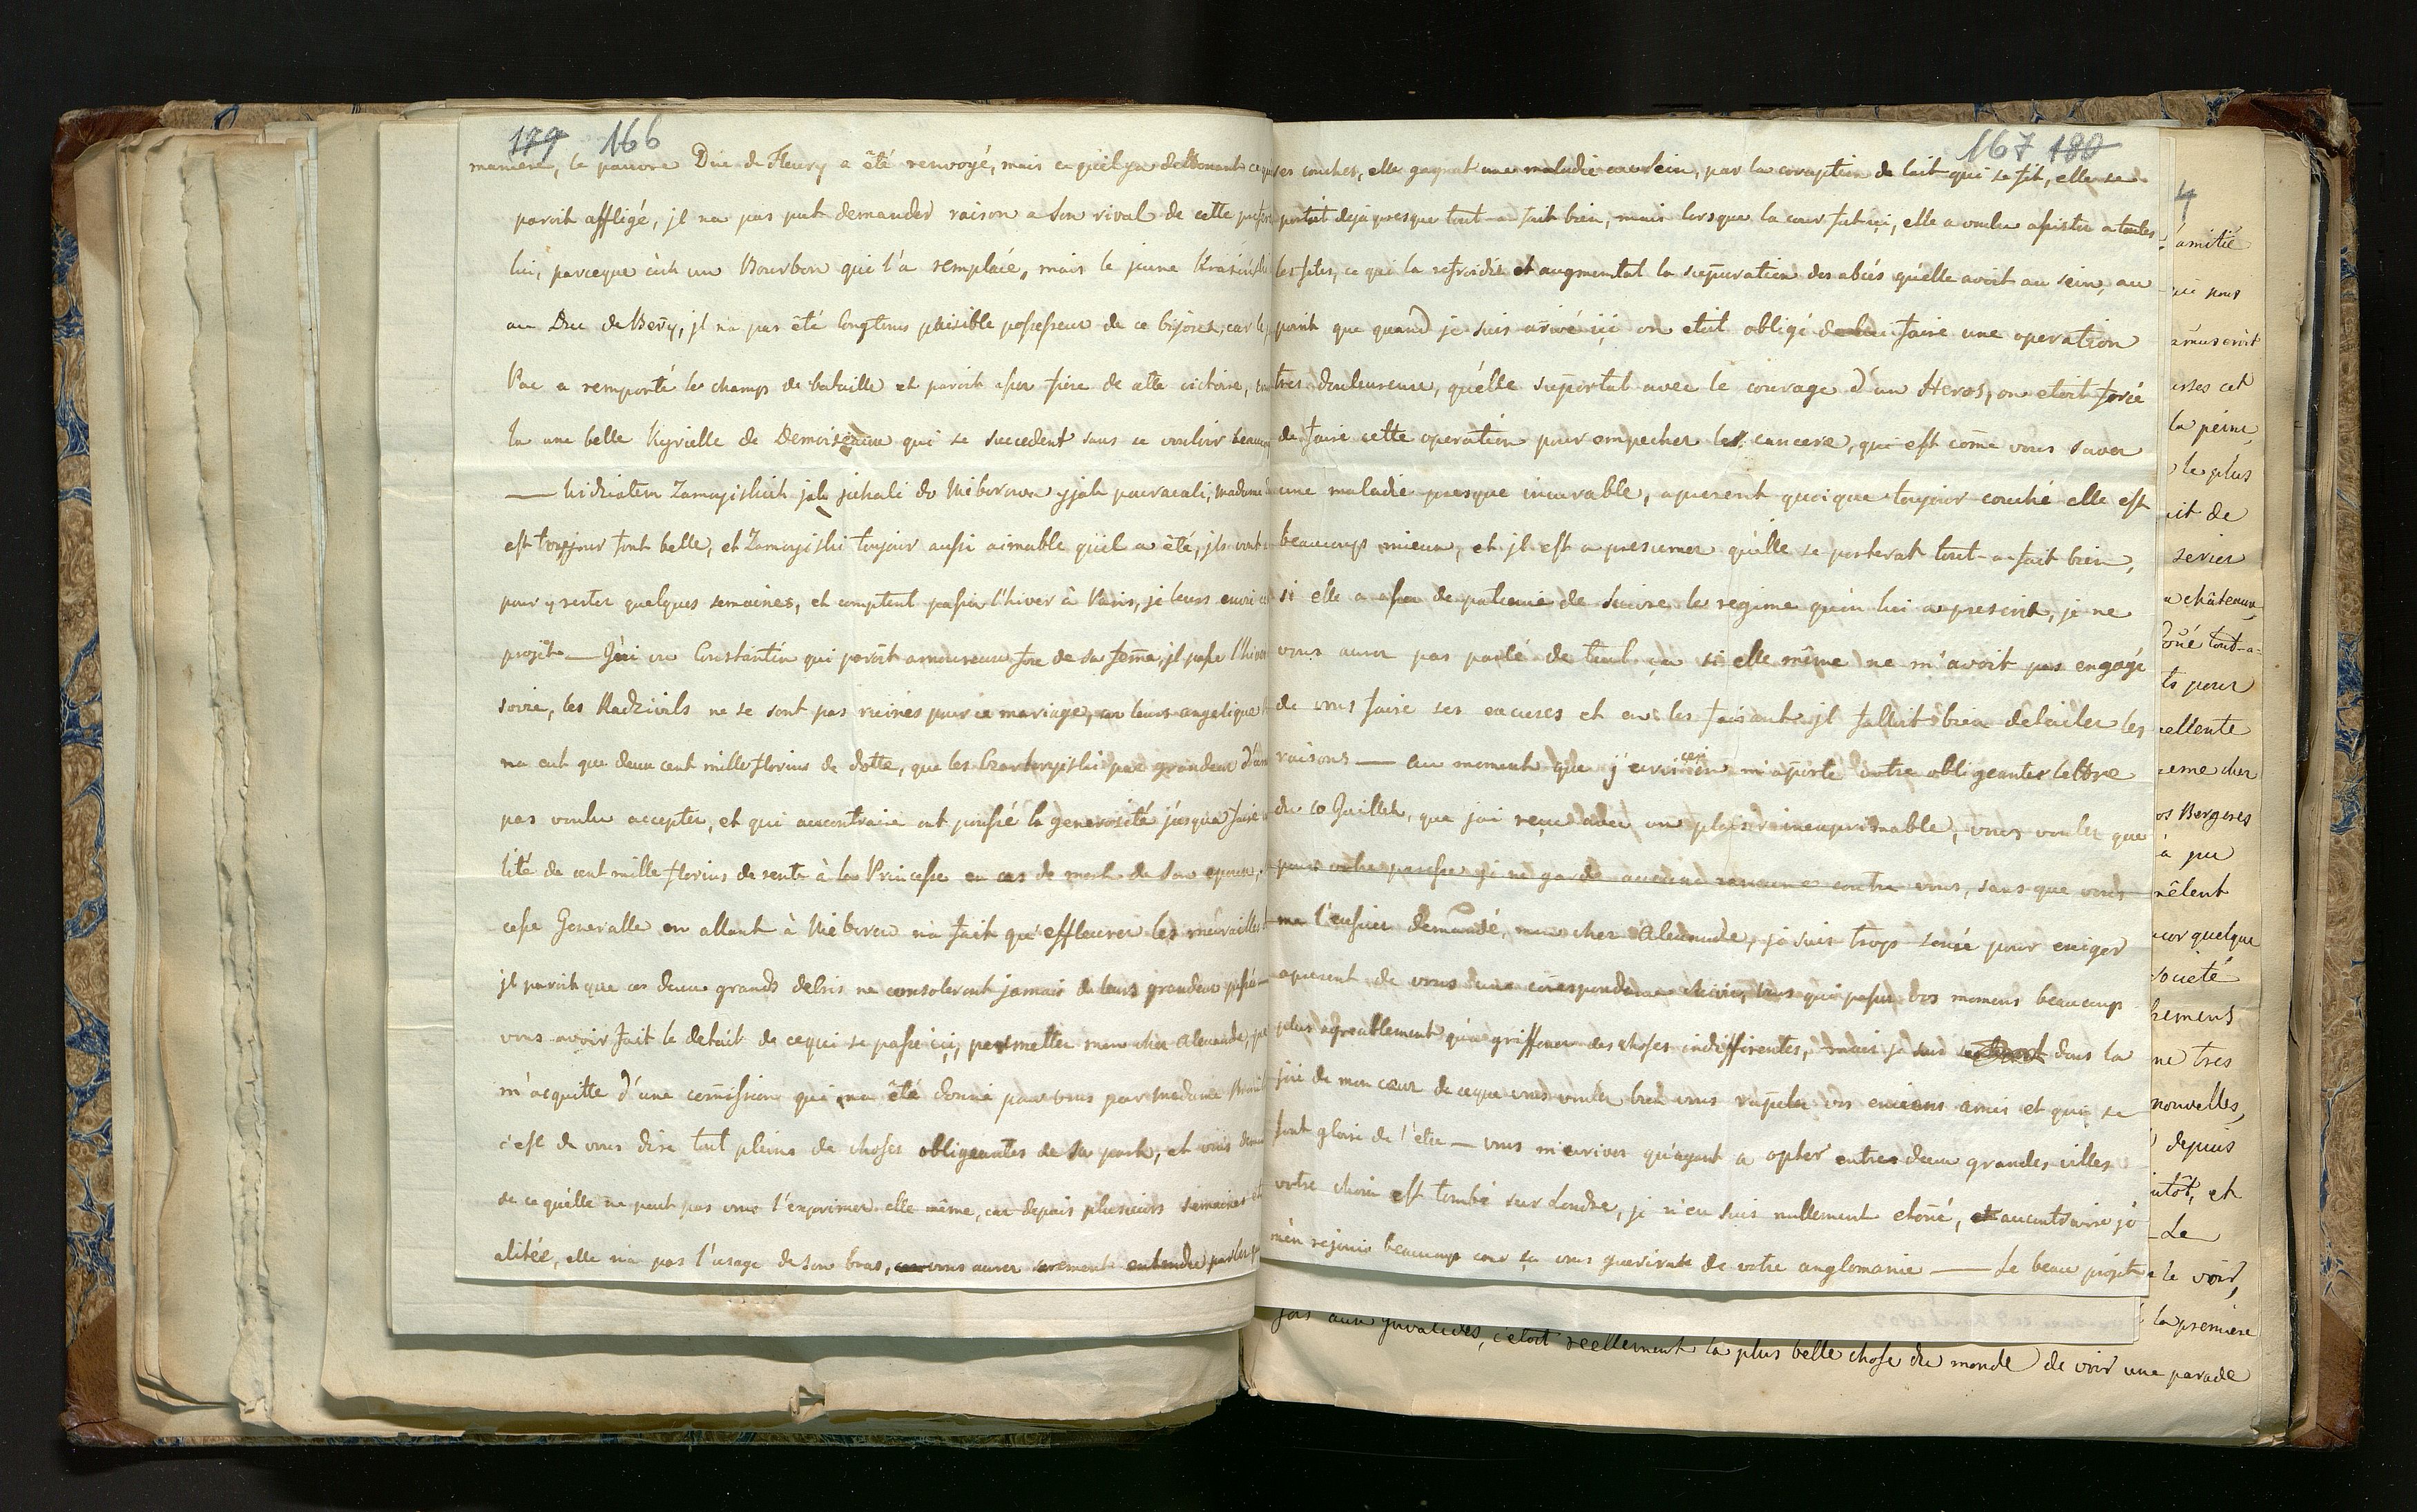 179 166
maniere, le pauvre Duc de Fleury a été renvoyé, mais ce qu'il y a d'ettonant ce qu
paroit affligé, jl na pas put demander raison a son rival de cette
lui, parceque c'ets un Bourbon qui l'a remplacé, mais le jeune Krasinski
au Duc de Bery, jl na pas été longtems paisible possesseur de ce bijoux, car le
Pac a remporté le champs de bataille et paroit assez fiere de cette victoire,
la une belle Kyrielle de Demoiseaux qui se succedent sans se vouloir beaucou
— Zamoyskich jak jichali do Nieborowa y jak powracali, Madame
est toujour tout belle, et Zamoyiski toujour aussi aimable qu'il a été, jls vont
pour y rester quelques semaines, et comptent passer l'hiver à Paris, je leurs envie ce
projet — J'ai vu Constantin qui paroit amoureux fou de sa fem̄e, jl passe l'hiver
sovie, les Radzivils ne se sont pas ruinés pour ce mariage, car leurs angelique
na eut que deux cent mille florins de dotte, que les Czartoryiski par grandeur d'am
pas voulu accepter, et qui aucontraire ont poussé la generosité jusqu'a faire
lité de cent mille florins de rente à la Princesse en cas de mort de son epoux,
cesse Generalle en allant à Nieborow n'a fait qu'effleurer les murailles
jl paroit que ces deux grands debris ne consoleront jamais de leurs grandeur passé
vous avoir fait le detail de cequi se passe içi, permettez mon cher Alexandre, que
m'acquitte d'une com̄ission qui ma été donné pour vous par Madame
c'est de vous dire tout pleins de choses obligeantes de sa part, et vous
de ce qu'elle ne peut pas vous l'exprimer elle même, car depuis plusieurs semaines
alitée, elle n'a pas l'usage de son bras, vous aurez surement entendu parler
167 180
ses couches, elle gagnat une maladie au sein, par la coruption de lait qui se fit, elle se
portoit deja presque tout-a-fait bien, mais lorsque la cour fut içi, elle a voulu assister a toutes
les fetes, ce qui la refroidit et augmentat la supuration des abcés qu'elle avoit au sein, au
point que quand je suis arrivé içi on etoit obligé de lui faire une operation
tres-douleureuse, qu'elle suportat avec le courage d'un Heros, on etoit forcé
de faire cette operation pour empecher les cancere, qui est com̄e vous savez
une maladie presque incurable, apresent quoique toujour couché elle est
beaucoup mieux, et jl est a presumer qu'elle se porterat tout-a-fait bien,
si elle a assez de patience de suivre le regime qu'on lui a prescrit, je ne
vous aurez pas parlé de tout ça si elle même ne m'avoit pas engagé
de vous faire ses excuses et en les faisant jl falloit bien detailer les
raisons — au moment que j'ecrois ceci on m'aporte votre obligeante lettre
du 10 Juillet, que jai reçue avec un plaisir inexprimable, vous voulez que
pour votre paresse je ne garde aucune rancune contre vous, sans que vous
me l'eussiez demandé, mon cher Alexandre, je suis trop sensé pour exiger
apresent de vous une corespondance suivie, vous qui passez vos momens beaucoup
plus agreablement qu'a griffoner des choses indifferentes, mais je suis dans la
joie de mon cœur de ceque vous voulez bien vous rapeler vos enciens amis et qui se
font gloire de l'etre — vous m'ecrivez qu'ayant a opter entre deux grandes villes
votre choix est tombé sur Londre, je n'en suis nullement etoñé, aucontraire je
m'en rejouis beaucoup car ça vous guerirat de votre anglomanie — Le beau projet
4
amitié
amuseroit
la peine
le plus
de
serier
chateaux
tout-a-
pour
cellente
cher
Bergeres
à pu
mêlent
quelque
societé
ne tres
nouvelles,
depuis
et
Le
le voir,
la premiere
aux jnvalides, c'etoit reellement la plus belle chose du monde de voir une parade